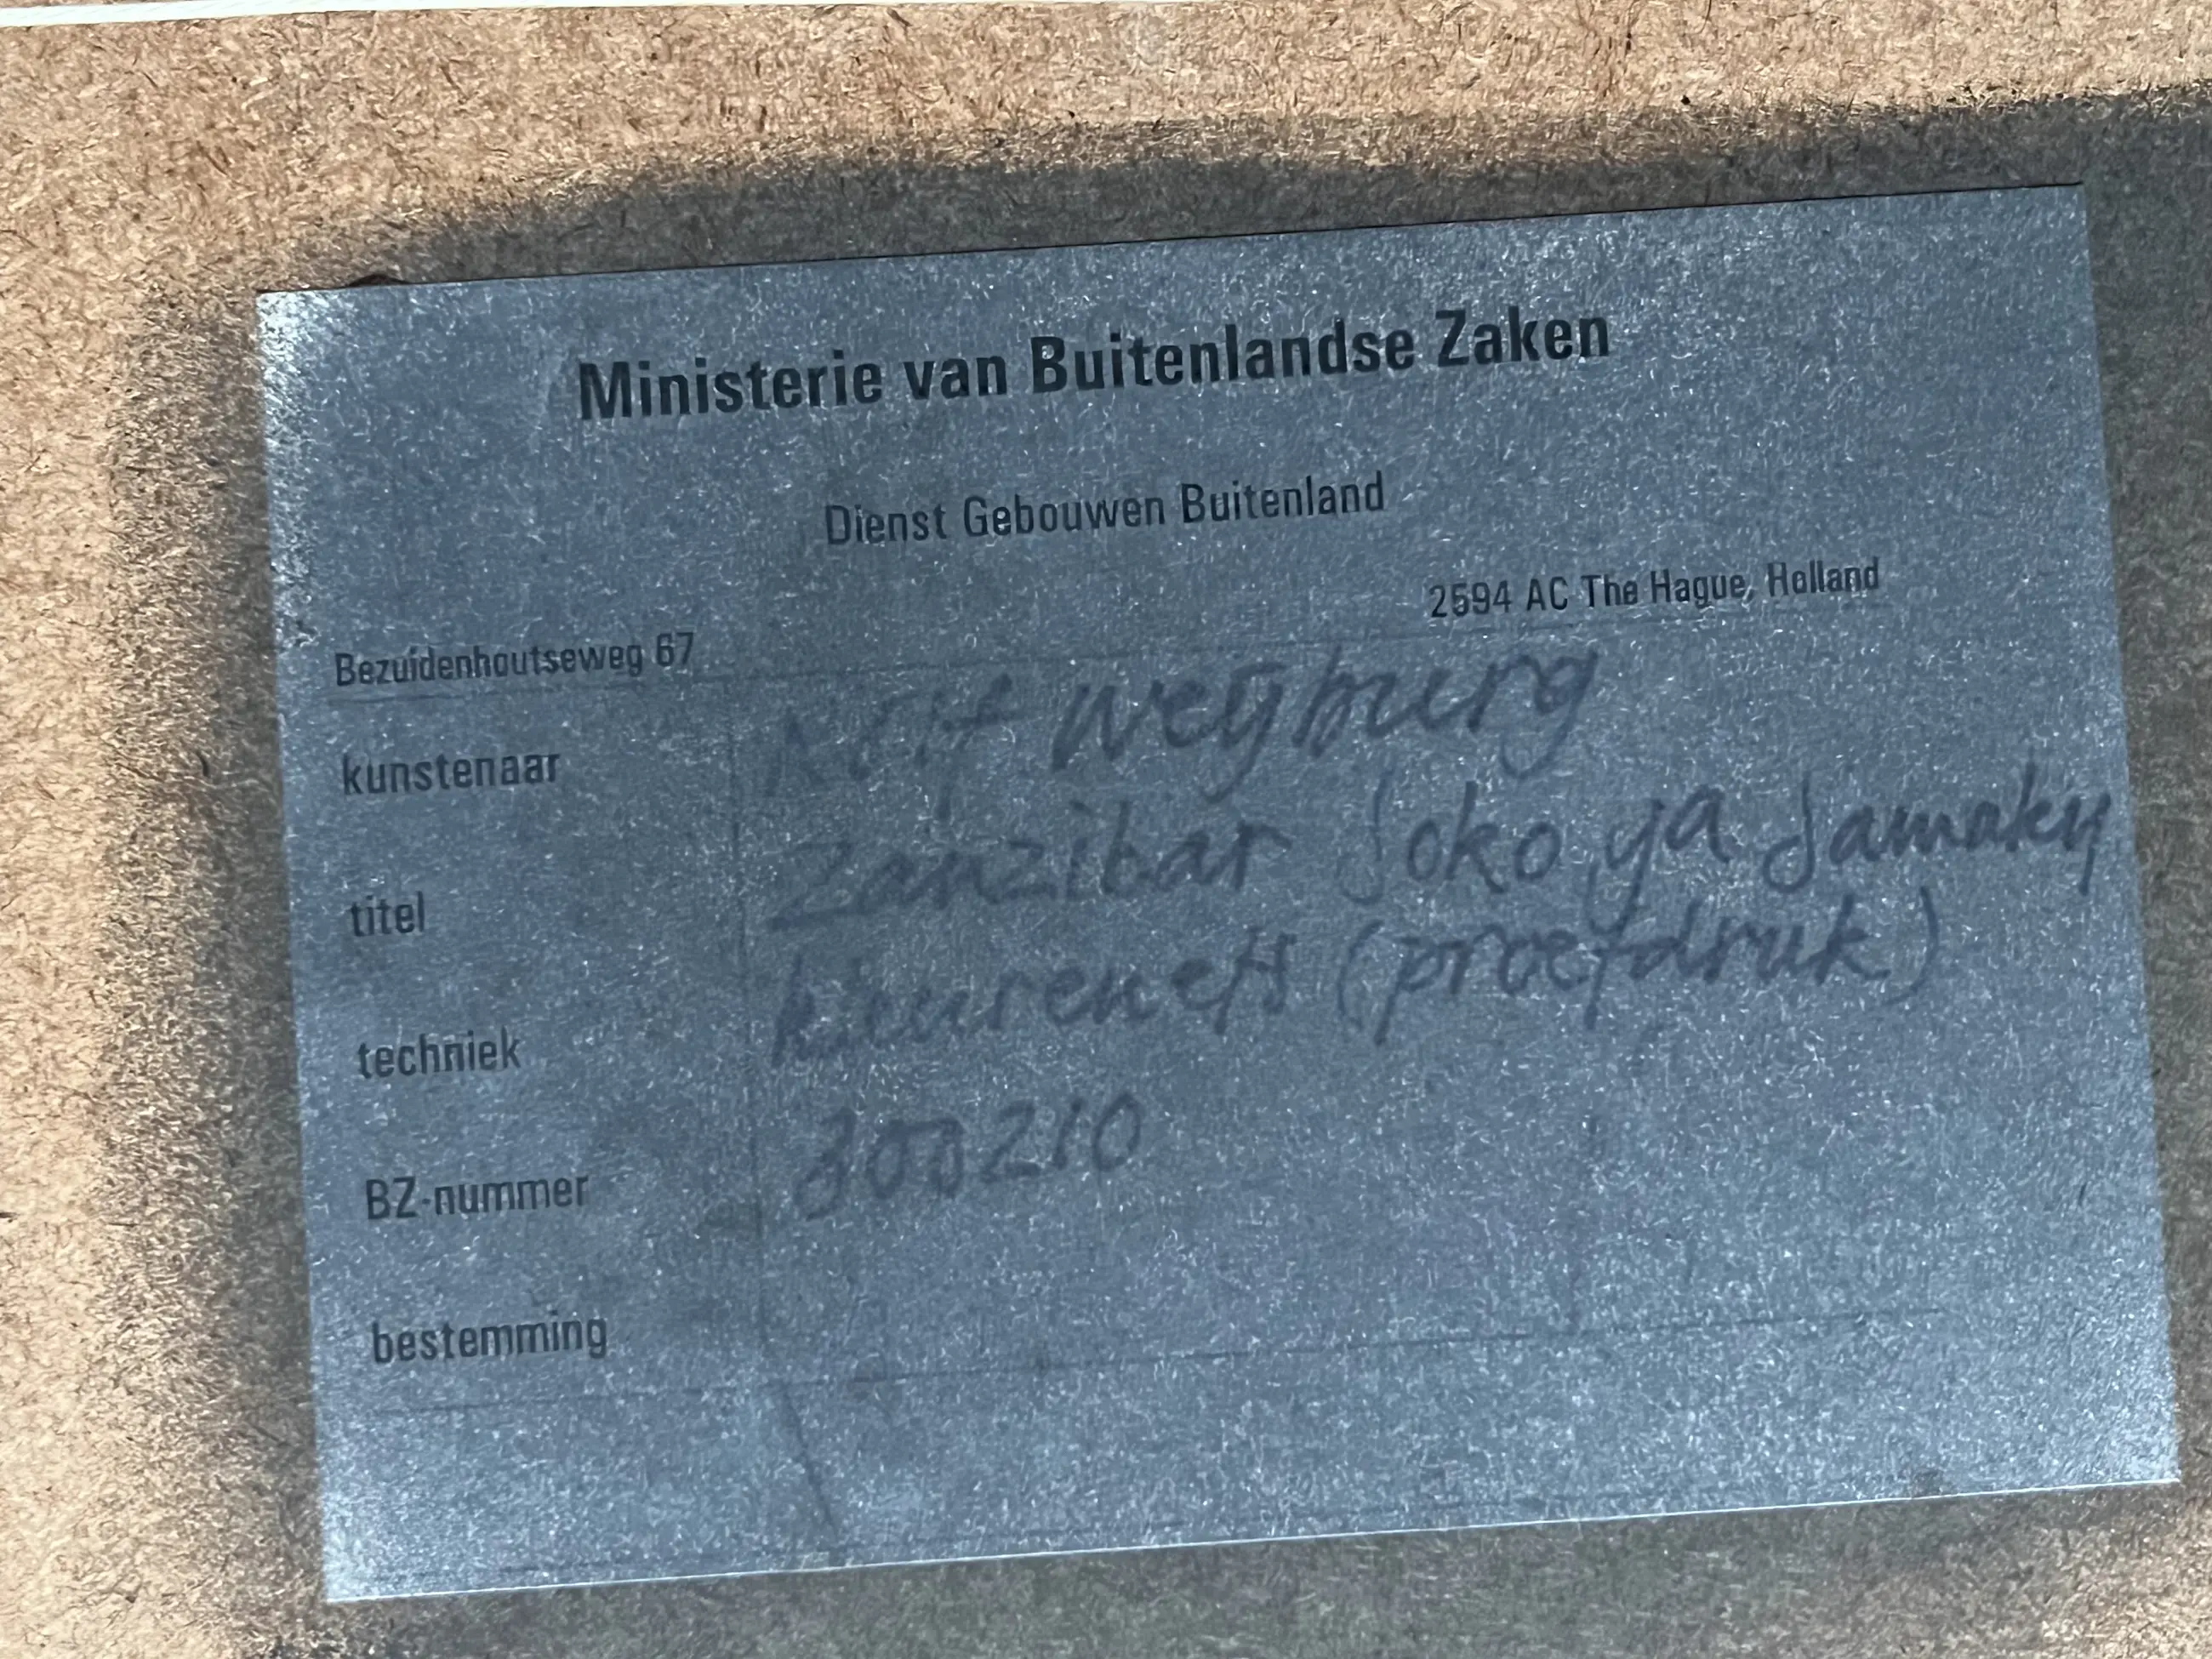 Ministerie van Buitenlandse Zaken
Dienst Gebouwen Buitenland
Bezuidenhoutseweg 67 2594 AC The Hague, Holland
kunstenaar Rolf Weijburg
titel Zanzibar Soko ya Samaky
techniek kleurenets (proefdruk)
BZ-nummer 300210
bestemming